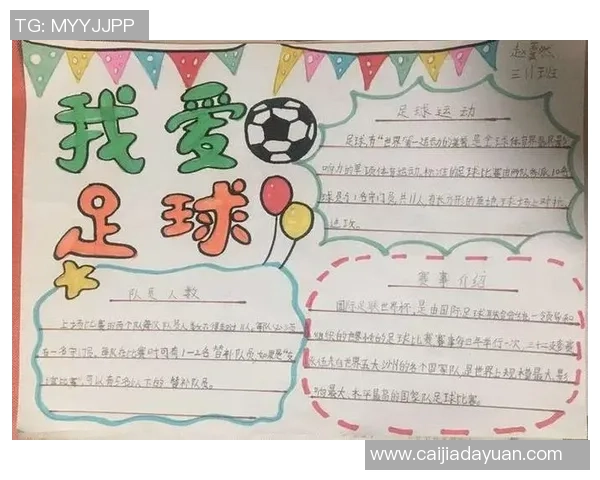 TG: MYYJJPP
三11班
我爱
足球
足球运动
足球,有"世界第一运动"的美誉,是全球体育界最具影
响力的单项体育运动,标准的足球比赛由两队各派10名
球员与1名守门员,共11人,在长方形的草地球场上对抗、
进攻。
队员人数
上场比赛的两个队每队队员人数
有一名守门员,每队在比赛时可有1-2名替补队员,如果是"友
谊比赛",可以有5名以下的替补队员。
赛事介绍
国际足联世界杯,是由国际足球
组织的世界性的足球比赛,赛事每四年举行一次,三十二支参赛
队伍来自世界五大洲的各个国家队,是世界上规模最大,影
响最大,水平最高的国家队足球比赛。
www.caijiadayuan.com